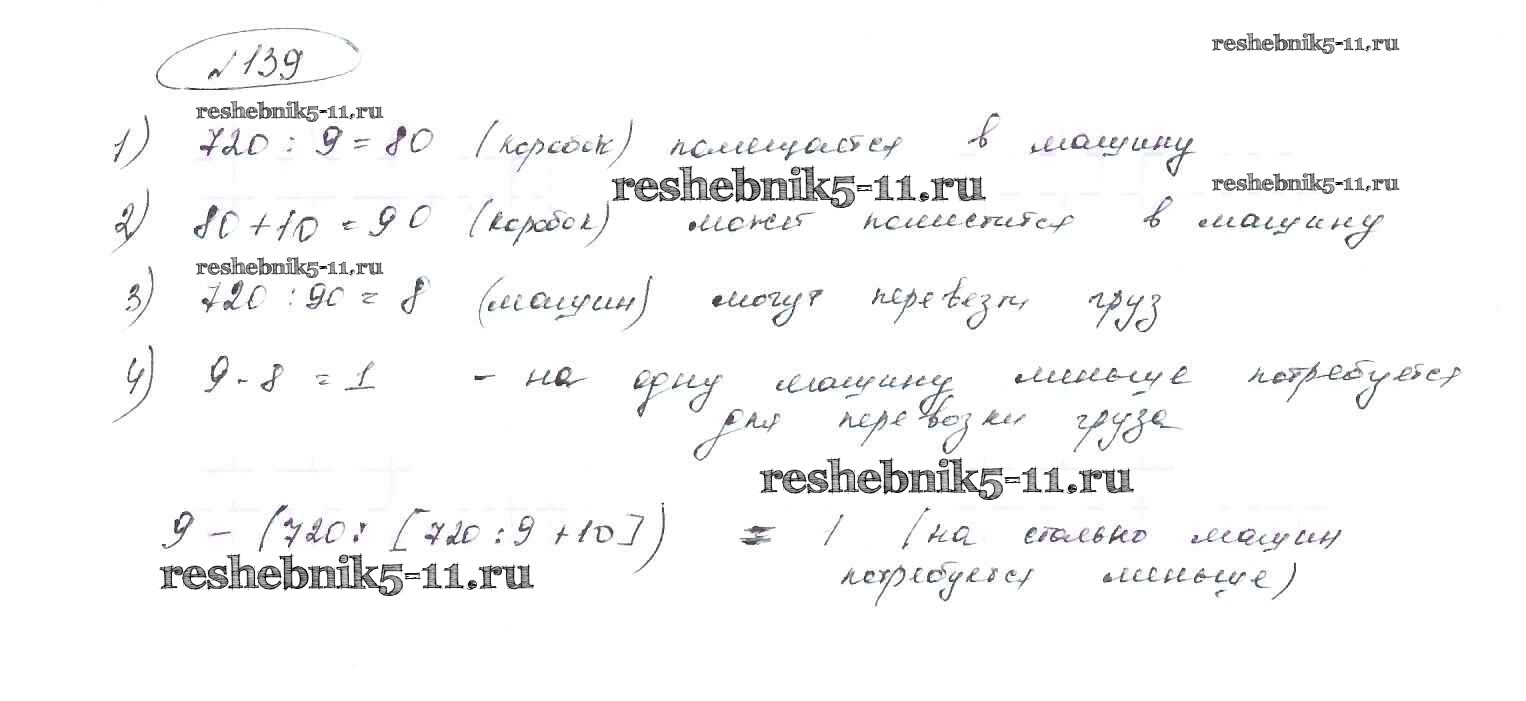 №139
reshebnik5-11.ru
reshebnik5-11.ru
1) 720 : 9 = 80 (коробок) помещается в машину
reshebnik5-11.ru
reshebnik5-11.ru
2) 80 + 10 = 90 (коробок) может поместится в машину
reshebnik5-11.ru
3) 720 : 90 = 8 (машин) могут перевезти груз
4) 9 - 8 = 1 - на одну машину меньше потребуется
для перевозки груза
reshebnik5-11.ru
9 - (720 : [720 : 9 + 10]) = 1 (на столько машин
reshebnik5-11.ru
потребуется меньше)